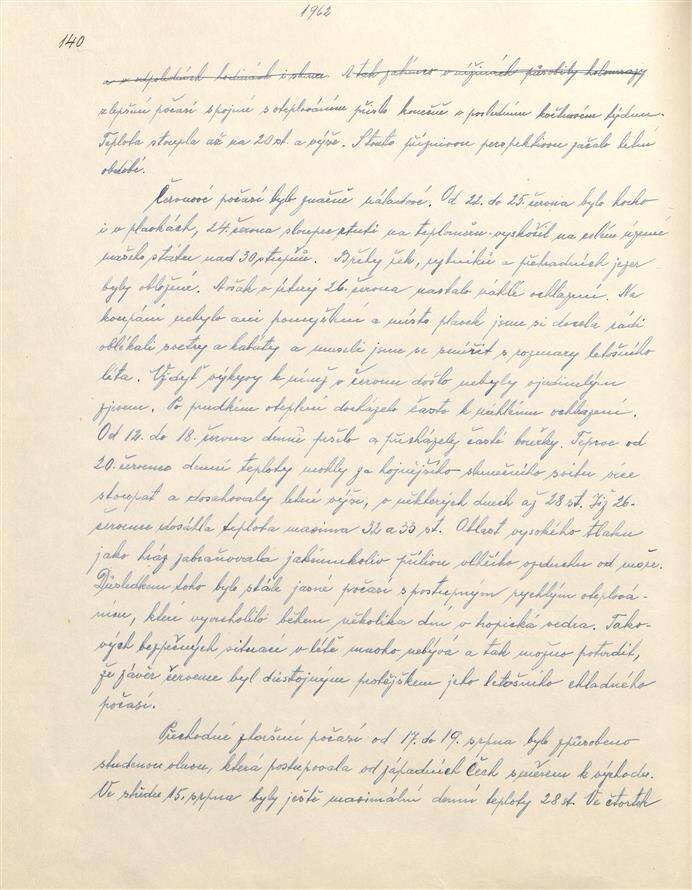 1962
140
a v odpoledních hodinách i slunce. A tak jakousi v nížinách působily
zlepšení počasí spojené s oteplováním přišlo konečně v posledním květnovém týdnu.
Teplota stoupla až na 20 st. a výše. S touto příznivou perspektivou začalo letní
období.
Červnové počasí bylo značně náladové. Od 22. do 25. června bylo horko
i v plavkách, 24. června sloupec rtuti na teploměru vyskočil na celém území
našeho státu nad 30 stupňů. Břehy řek, rybníků a přehradních jezer
byly obloženy. Avšak v úterý 26. června nastalo náhlé ochlazení. Na
koupání nebylo ani pomyšlení a místo plavek jsme si docela rádi
oblékali svetry a kabáty a museli jsme se smířit s rozmary letošního
léta. Vždyť výkyvy k nimž v červnu došlo nebyly ojedinělým
zjevem. Po prudkém oteplení docházelo často k náhlému ochlazení.
Od 12. do 18. června denně pršelo a přicházely časté bouřky. Teprve od
20. července denní teploty mohly za hojnějšího slunečního svitu více
stoupat a dosahovaly letní výše, v některých dnech až 28 st. Již 26.
července dosáhla teplota maxima 32 a 33 st. Oblast vysokého tlaku
jako hráz zabraňovala jakémukoliv přílivu vlhkého vzduchu od moře.
Důsledkem toho bylo stále jasné počasí s postupným rychlým oteplová-
ním, které vyvrcholilo během několika dní v tropická vedra. Tako-
vých bezpečných situací v létě mnoho nebývá a tak možno potvrdit,
že závěr července byl důstojným protějškem jeho letošního chladného
počasí.
Přechodné zhoršení počasí od 17. do 19. srpna bylo způsobeno
studenou vlnou, která postupovala od západních Čech směrem k východu.
Ve středu 15. srpna byly ještě maximální denní teploty 28 st. Ve čtvrtek